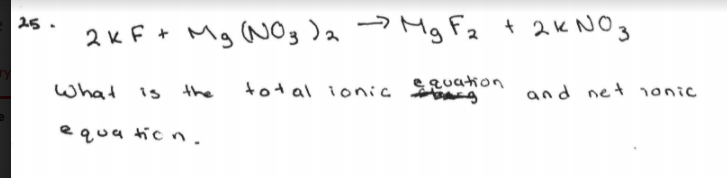 25. 2KF + Mg(NO3)2 → MgF2 + 2KNO3
What is the total ionic equation and net ionic
equation.